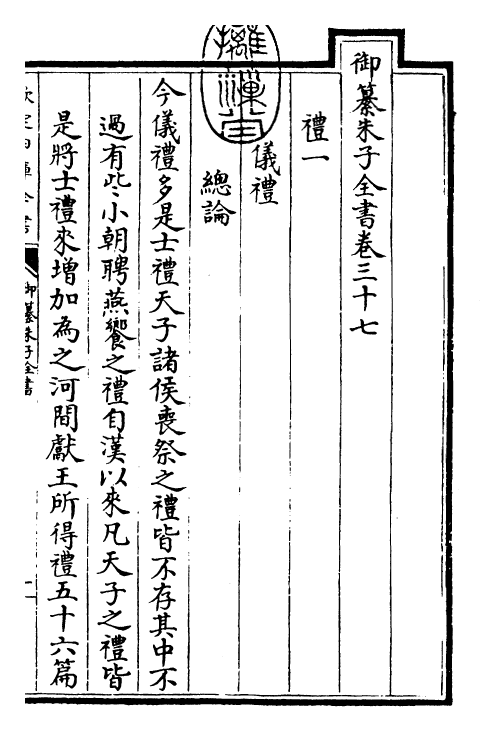 御纂朱子全書卷三十七
禮一
儀禮
總論
今儀禮多是士禮天子諸侯喪祭之禮皆不存其中不
過有些小朝聘燕饗之禮自漢以來凡天子之禮皆
是將士禮來增加為之河間獻王所得禮五十六篇
御纂朱子全書